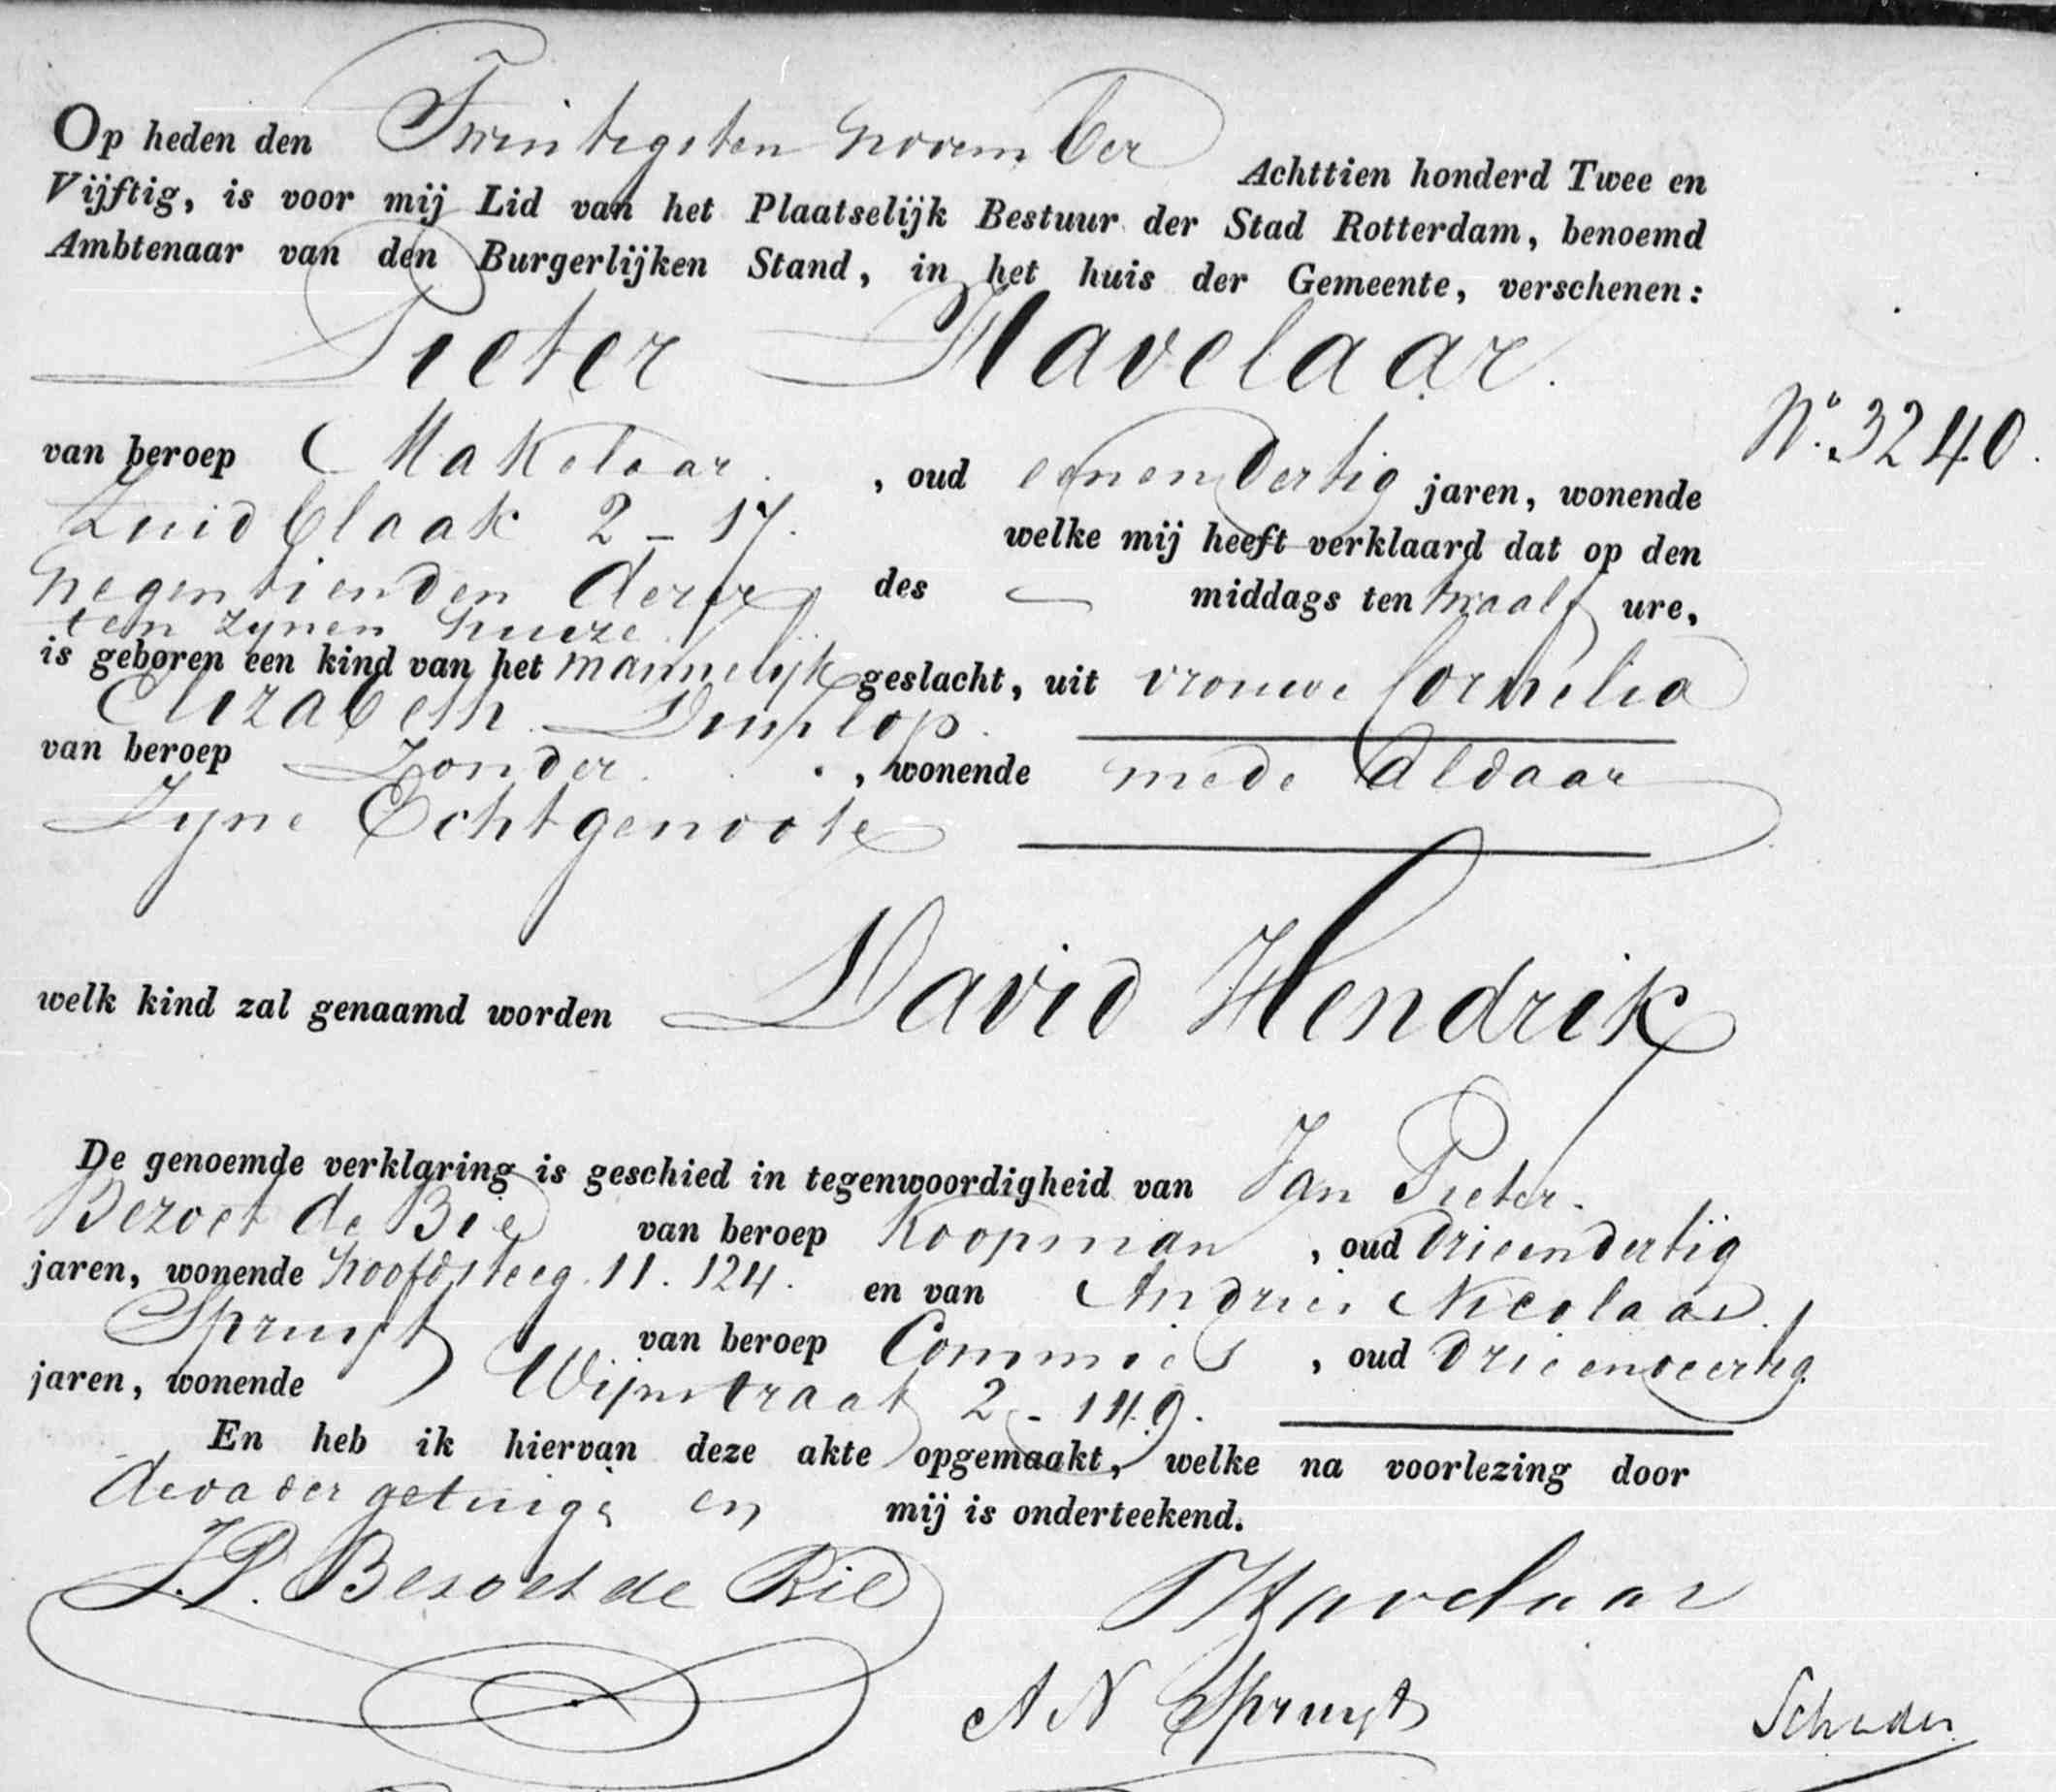 Op heden den Twintigsten November Achttien honderd Twee en
Vijftig, is voor mij Lid van het Plaatselijk Bestuur der Stad Rotterdam, benoemd
Ambtenaar van den Burgerlijken Stand, in het huis der Gemeente, verschenen:
Pieter Havelaar.
No. 3240.
van beroep Makelaar. , oud eenendertig jaren, wonende
Zuidblaak 2 - 17. welke mij heeft verklaard dat op den
Negentienden dezer des — middags ten twaalf ure,
ten zijnen huize
is geboren een kind van het mannelijk geslacht, uit vrouwe Cornelia
Elizabeth Dunlop.
van beroep Zonder. , wonende mede aldaar
Zyne Echtgenoote
welk kind zal genaamd worden David Hendrik
De genoemde verklaring is geschied in tegenwoordigheid van Jan Pieter
Bezoet de Bie van beroep Koopman , oud drieendertig
jaren, wonende Hoofdsteeg 11. 124. en van Andries Nicolaas
Spruyt van beroep Commies , oud drieenveertig
jaren, wonende Wijnstraat 2 - 149.
En heb ik hiervan deze akte opgemaakt, welke na voorlezing door
de vader getuige en mij is onderteekend.
J.P. Bezoet de Bie PHavelaar
A N Spruyt